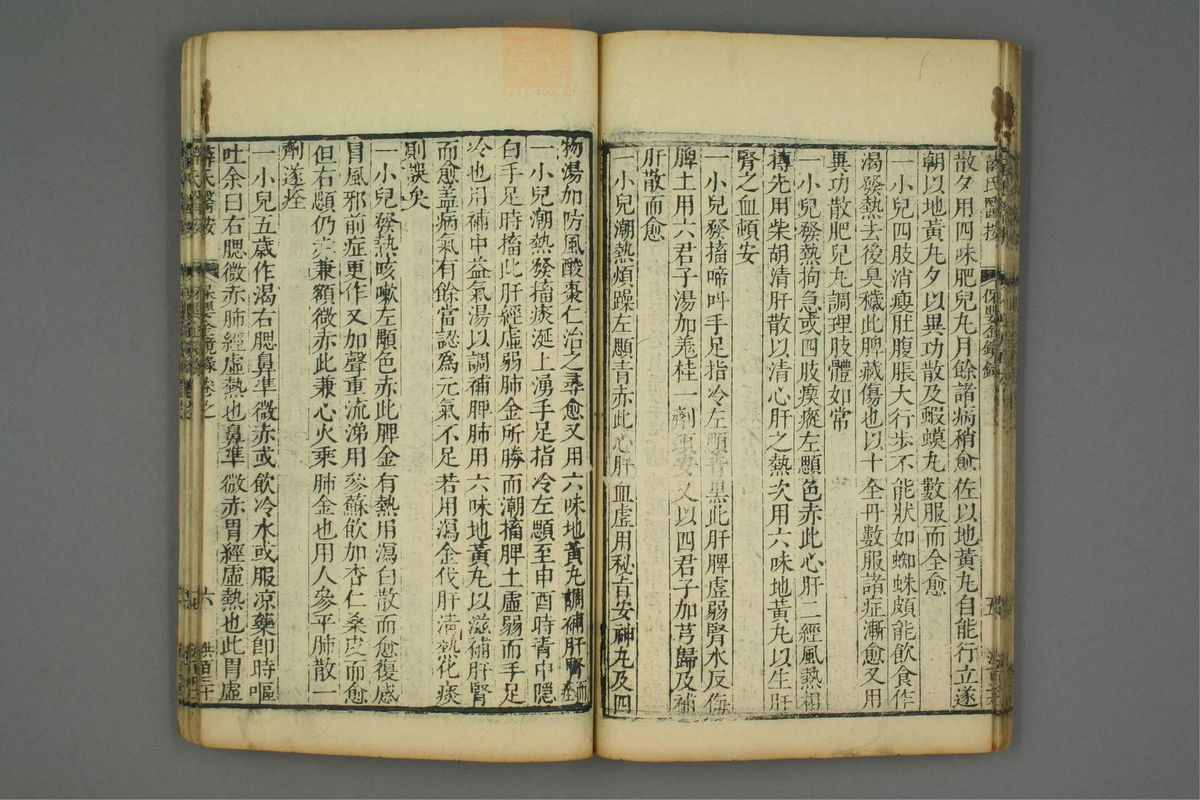 薛氏醫按 保嬰金鏡錄
散夕用四味肥兒丸月餘諸病稍愈佐以地黃丸自能行立遂
朝以地黃丸夕以異功散及蝦蟆丸數服而全愈
一小兒四肢消瘦肚腹脹大行步不能狀如蜘蛛頗能飲食作
渴發熱去後臭穢此脾臟傷也以十全丹數服諸症漸愈又用
異功散肥兒丸調理肢體如常
一小兒發熱拘急或四肢瘈瘲左顋色赤此心肝二經風熱相
摶先用柴胡清肝散以清心肝之熱次用六味地黃丸以生肝
腎之血頓安
一小兒發搐啼叫手足指冷左顋青黑此肝脾虛弱腎水反侮
脾土用六君子湯加羗桂一劑頓安又以四君子加芎歸及補
肝散而愈
一小兒潮熱煩躁左顋青赤此心肝血虛用秘旨安神丸及四
物湯加防風酸棗仁治之尋愈又用六味地黃丸調補肝腎而痊
一小兒潮熱發搐痰涎上湧手足指冷左顋至申酉時青中隱
白手足時搐此肝經虛弱肺金所勝而潮搐脾土虛弱而手足
冷也用補中益氣湯以調補脾肺用六味地黃丸以滋補肝腎
而愈盖病氣有餘當認爲元氣不足若用瀉金伐肝清熱化痰
則誤矣
一小兒發熱咳嗽左顋色赤此脾金有熱用瀉白散而愈復感
冒風邪前症更作又加聲重流涕用參蘇飲加杏仁桑皮而愈
但右顋仍赤兼額微赤此兼心火乘肺金也用人參平肺散一
劑遂痊
一小兒五歲作渴右腮鼻準微赤或飲冷水或服凉藥卽時嘔
吐余曰右腮微赤肺經虛熱也鼻準微赤胃經虛熱也此胃虛
薛氏醫按 保嬰金鏡錄卷之 六